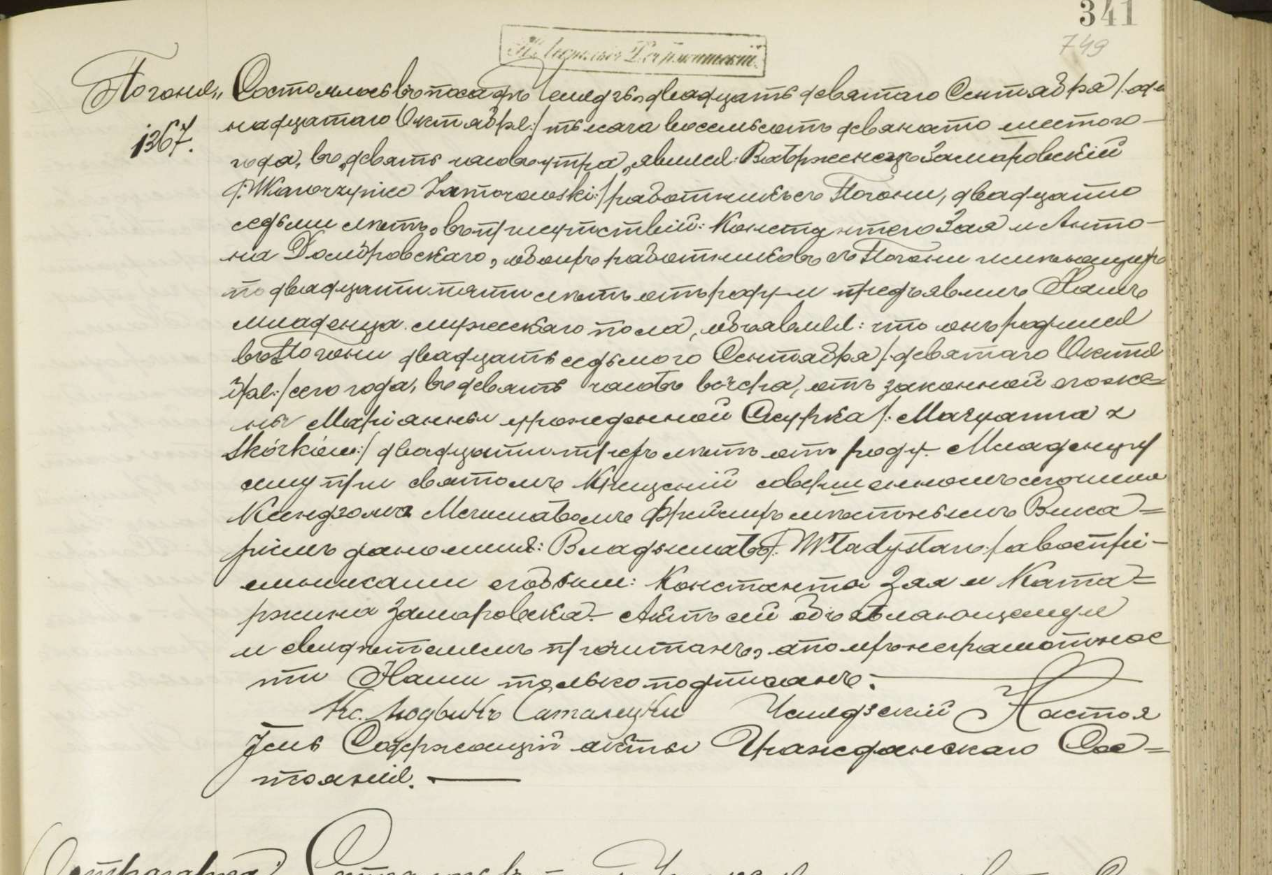 341
749
Погоня „ Состоялось въ посадѣ Челядзь, двадцать девятаго Сентября /:оди
1367. надцатаго Октября:/ тысяча восемьсотъ девяносто шестого
года, въ девять часовъ утра, явился: Вавржинецъ Замаровскій
/:Wawrzyniec Zamorowski:/ работникъ съ Погони, двадцати
седьми лѣтъ, въ присутствіи: Константого Зая и Анто-
на Домбровскаго, обоихъ работниковъ съ Погони имѣющихъ
по двадцати пяти лѣтъ отъ роду и предъявилъ Намъ
младенца мужескаго пола, объявляя: что онъ родился
въ Погони двадцать седьмого Сентября /:девятаго Октя
бря:/ сего года, въ девять часовъ вечера, отъ законной его же=
ны Маріанны урожденной Скурка /:Maryanna z
Skórków:/ двадцати трехъ лѣтъ отъ роду. Младенцу
сему при святомъ Крещеніи совершенномъ сегодня
Ксендзомъ Мечиславомъ мѣстнымъ Вика=
ріемъ дано имя: Владыславъ /:Władysław:/ а воспрі-
емниками его были: Константы Зая и Ката=
ржина Замаровска. Актъ сей объявляющему
и свидѣтелямъ прочитанъ, а по ихъ неграмотнос
ти Нами только подписанъ.
Кс. Людвикъ Челядзскій Настоя
тель Содержащій акты Гражданскаго Сос=
тоянія.